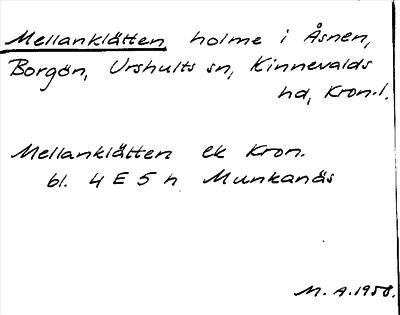 Mellanklätten, holme i Åsnen,
Borgön, Urshults sn, Kinnevalds
hd, Kron.l.
Mellanklätten ek Kron.
bl. 4 E 5 h Munkanäs
M. A. 1958.